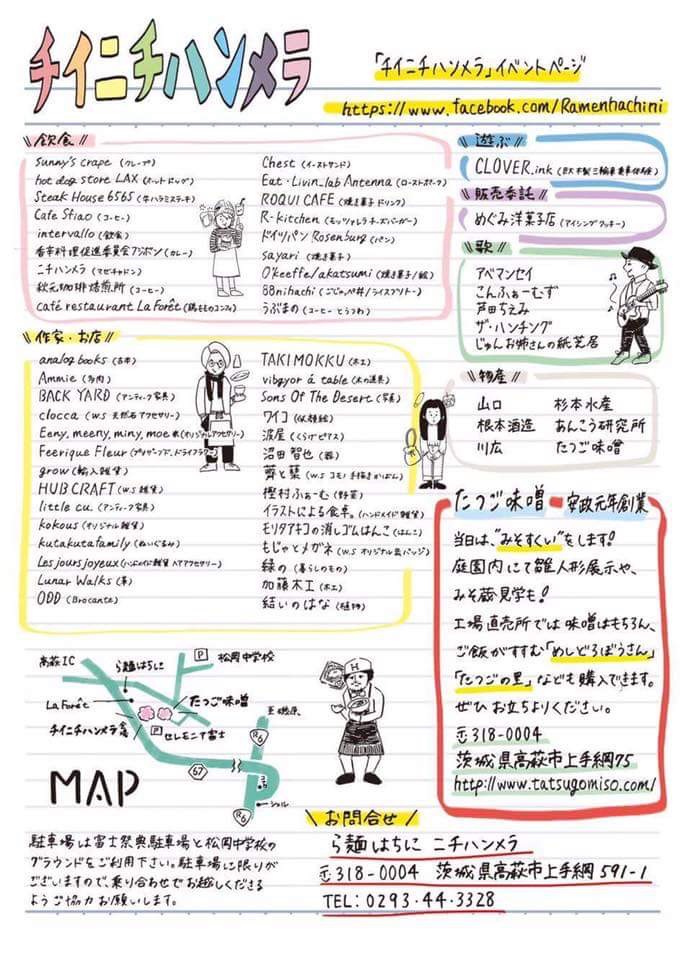 チイニチハンメラ
「チイニチハンメラ」イベントページ
https://www.facebook.com/Ramenhachini
飲食
sunny's crape (クレープ)
hot dog store LAX (ホットドッグ)
Steak House 6565 (牛ハラミステーキ)
Cafe Stiao (コーヒー)
intervallo (飲食)
香辛料理促進委員会フジボン (カレー)
ニチハンメラ (マゼキャドン)
秋元珈琲焙煎所 (コーヒー)
café restaurant La Forêt (鶏もものコンフィ)
Chest (イーストサンド)
Eat・Livin_lab Antenna (ローストポーク)
ROQUI CAFE (焼き菓子 ドリンク)
R-kitchen (モッツァレラ チーズバーガー)
ドイツパン Rosenburg (パン)
sayari (焼き菓子)
O'keeffe/akatsumi (焼き菓子/絵)
88nihachi (ごじゃっぺ丼/ライスプリトー)
うぶまの (コーヒー とうつわ)
遊ぶ
CLOVER.ink (巨大木製三輪車乗車体験)
販売委託
めぐみ洋菓子店 (アイシングクッキー)
歌
アベマンセイ
こんふぁーむず
芦田ちえみ
ザ・ハンチング
じゅんお姉さんの紙芝居
作家・お店
analog books (古本)
Ammie (多肉)
BACK YARD (アンティーク家具)
clocca (w.s 天然石アクセサリー)
Eeny, meeny, miny, moe* (オリジナルアクセサリー)
Feerique Fleur (プリザーブド、ドライフラワー)
grow (輸入雑貨)
HUB CRAFT (w.s)
little cu. (アンティーク家具)
kokous (オリジナル雑貨)
kutakutafamily (ぬいぐるみ)
Les jours joyeux (ハンドメイド雑貨 ヘアアクセサリー)
Lunar Walks (革)
ODD (Brocante)
TAKIMOKKU (木工)
vibgyor á table (木の道具)
Sons Of The Desert (写真)
ワイコ (似顔絵)
涙屋 (くらげピアス)
沼田智也 (器)
薺と藁 (w.s コモノ 手描きかばん)
樫村ふぁーむ (野菜)
イラストによる食卓。 (ハンドメイド雑貨)
モリタアキコの消しゴムはんこ (はんこ)
もじゃとメガネ (w.s オリジナル缶バッジ)
緑の (暮らしのもの)
加藤木工 (木工)
結いのはな (植物)
物産
山口 杉本水産
根本酒造 あんこう研究所
川広 たつご味噌
たつご味噌 安政元年創業
当日は、"みそすくい"をします!
庭園内にて雛人形展示や、
みそ蔵見学も!
工場直売所では味噌はもちろん、
ご飯がすすむ「めしどろぼうさん」
「たつごの里」なども購入できます。
ぜひお立ちよりください。
〒318-0004
茨城県高萩市上手綱75
http://www.tatsugomiso.com/
高萩IC
ら麺はちに
P 松岡中学校
La Forêt
たつご味噌
チイニチハンメラ会場
P セレモニア富士
至磯原
R6
67
R6
シェル
MAP
H
駐車場は富士祭典駐車場と松岡中学校の
グラウンドをご利用下さい。駐車場に限りが
ございますので、乗り合わせでお越しくださる
ようご協力お願いします。
お問合せ
ら麺はちに ニチハンメラ
〒318-0004 茨城県高萩市上手綱591-1
TEL:0293・44・3328